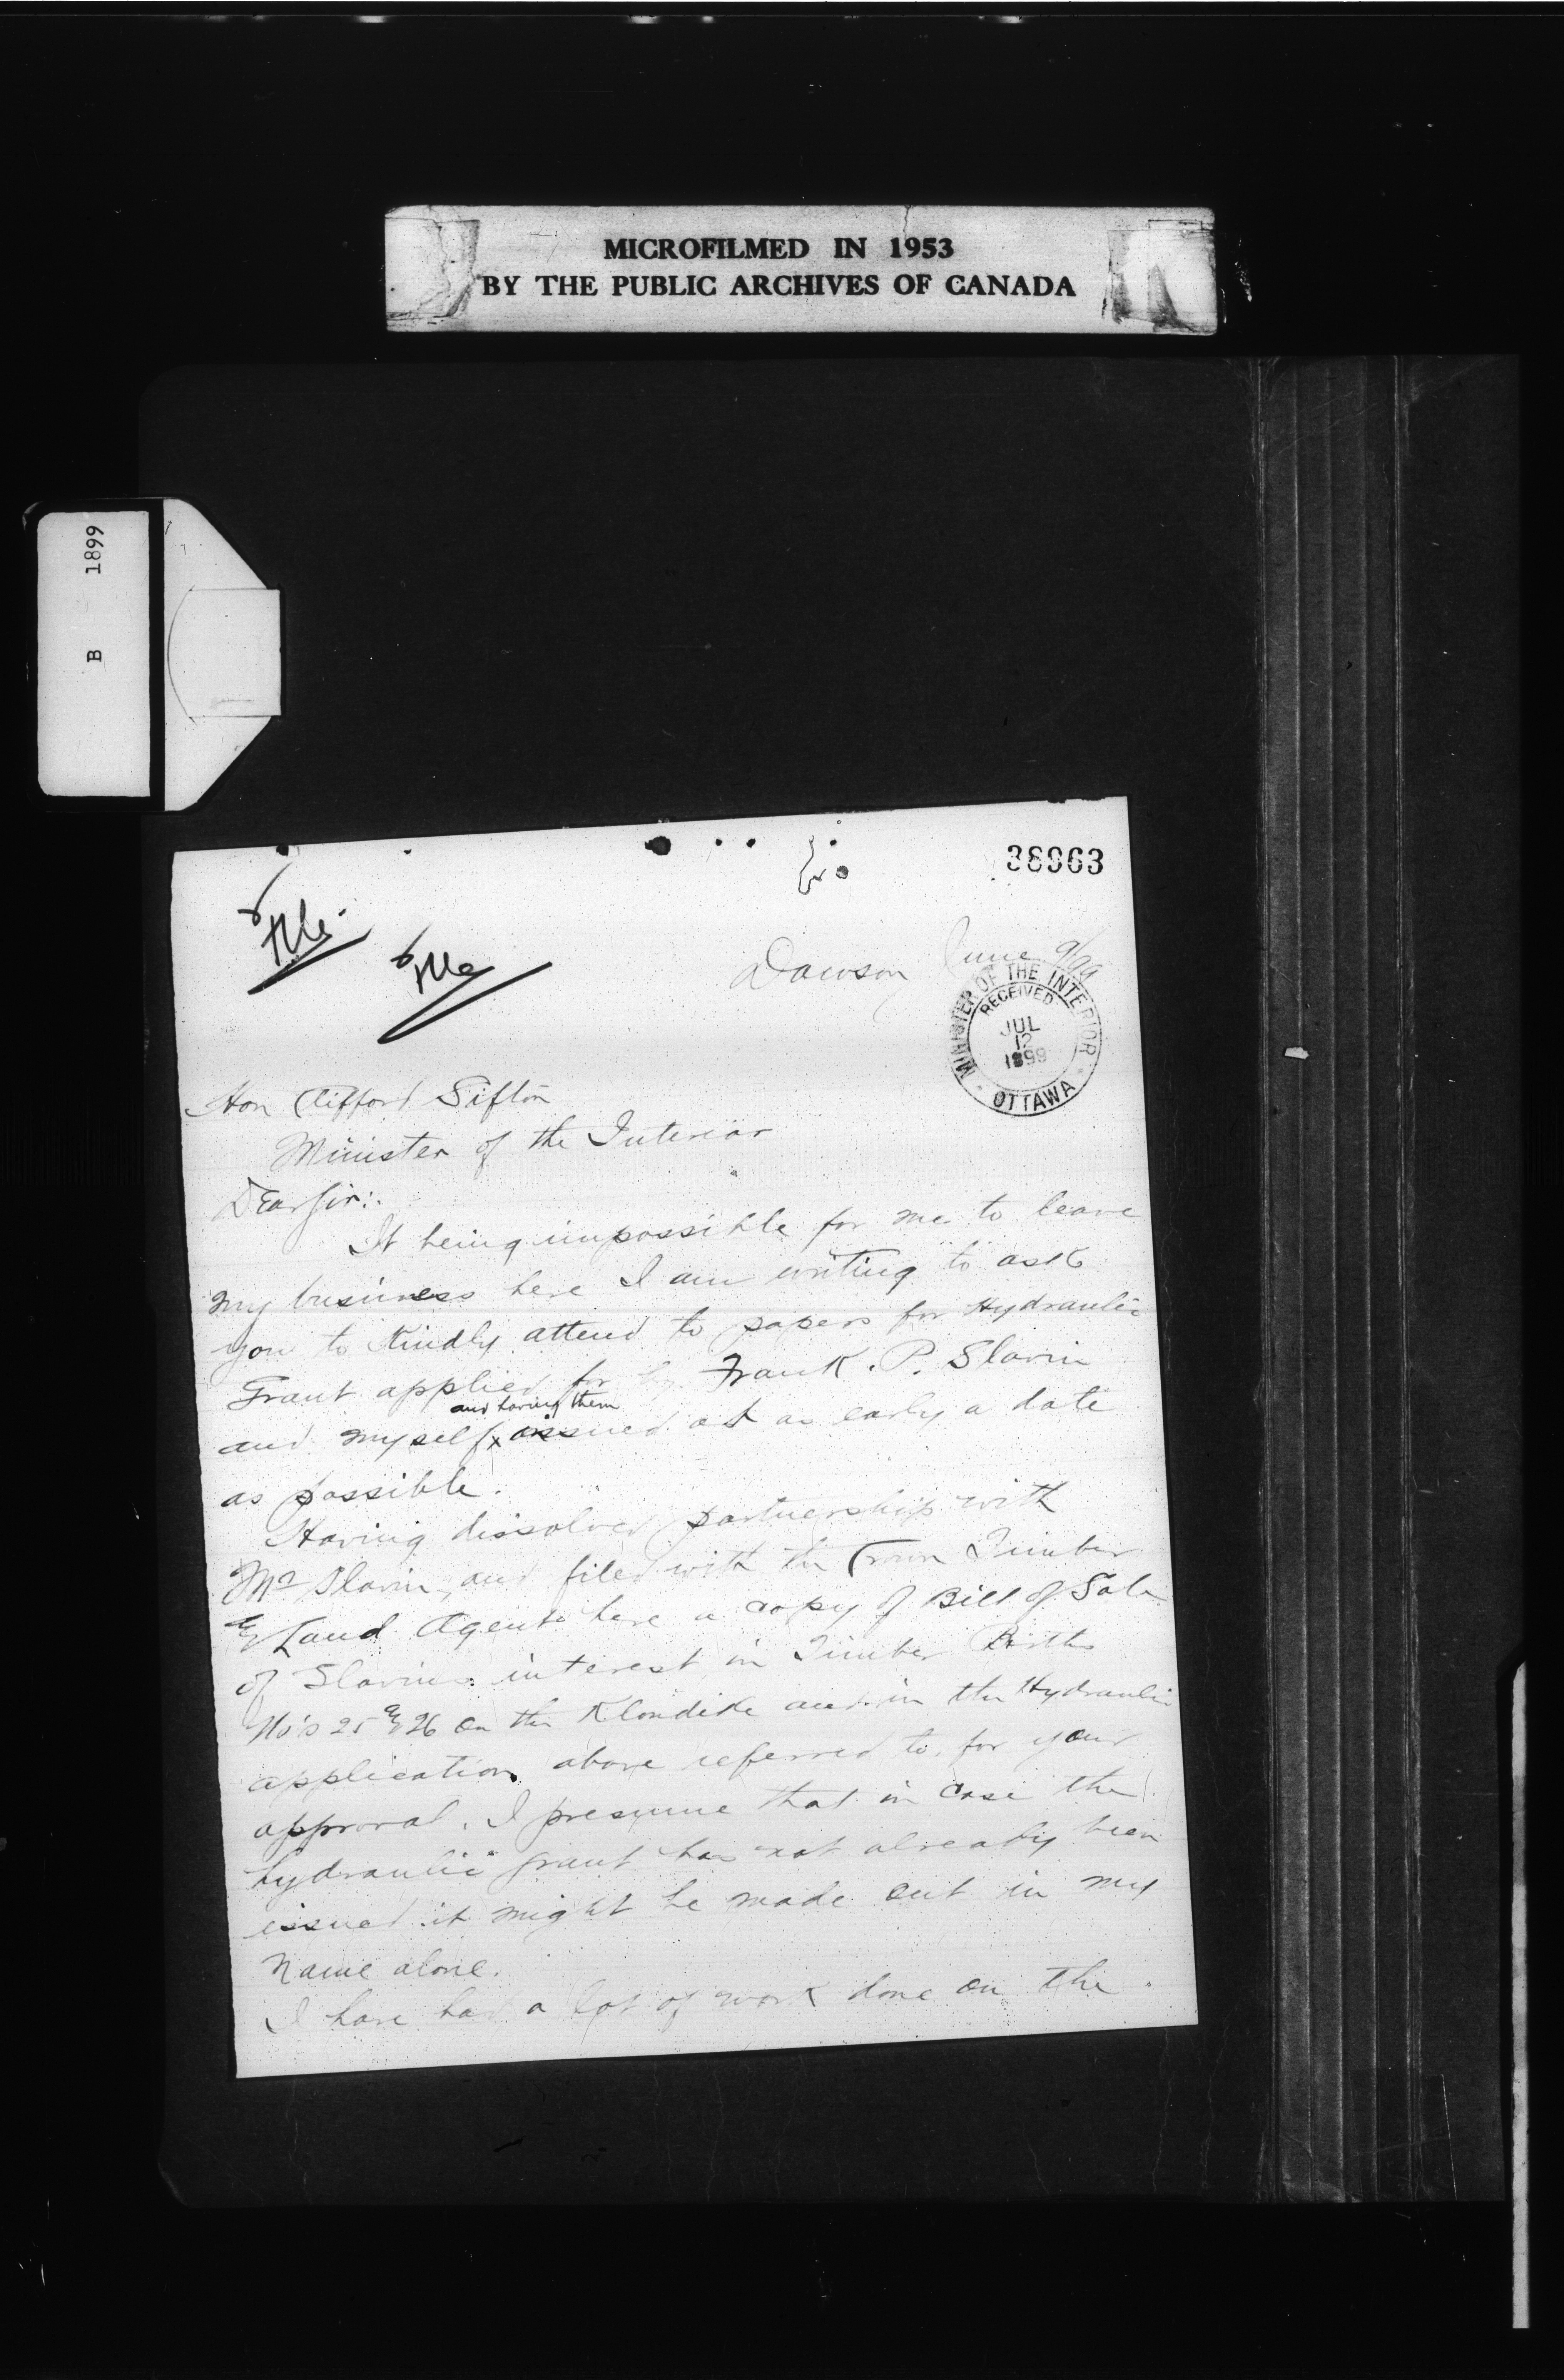 MICROFILMED IN 1953
BY THE PUBLIC ARCHIVES OF CANADA
B - 1899
38963
file
file
Dawson June 9/99
MINISTER OF THE INTERIOR
RECEIVED
JUL
12
1899
OTTAWA
Hon Clifford Sifton
Minister of the Interior
Dear Sir:.
It being impossible for me to leave
my business here I am writing to ask
you to kindly attend to papers for Hydraulic
Grant applied for by Frank. P. Slavin
and having them
and myself x issued at as early a date
as possible.
Having dissolved partnership with
Mr Slavin, and filed with the Crown Timber
& Land Agents here a copy of Bill of Sale
of Slavins interest in Timber Births
No's 25 & 26 on the Klondike and in the Hydraulic
application above referred to, for your
approval. I presume that in case the
hydraulic grant has not already been
issued it might be made out in my
name alone.
I have had a lot of work done on the